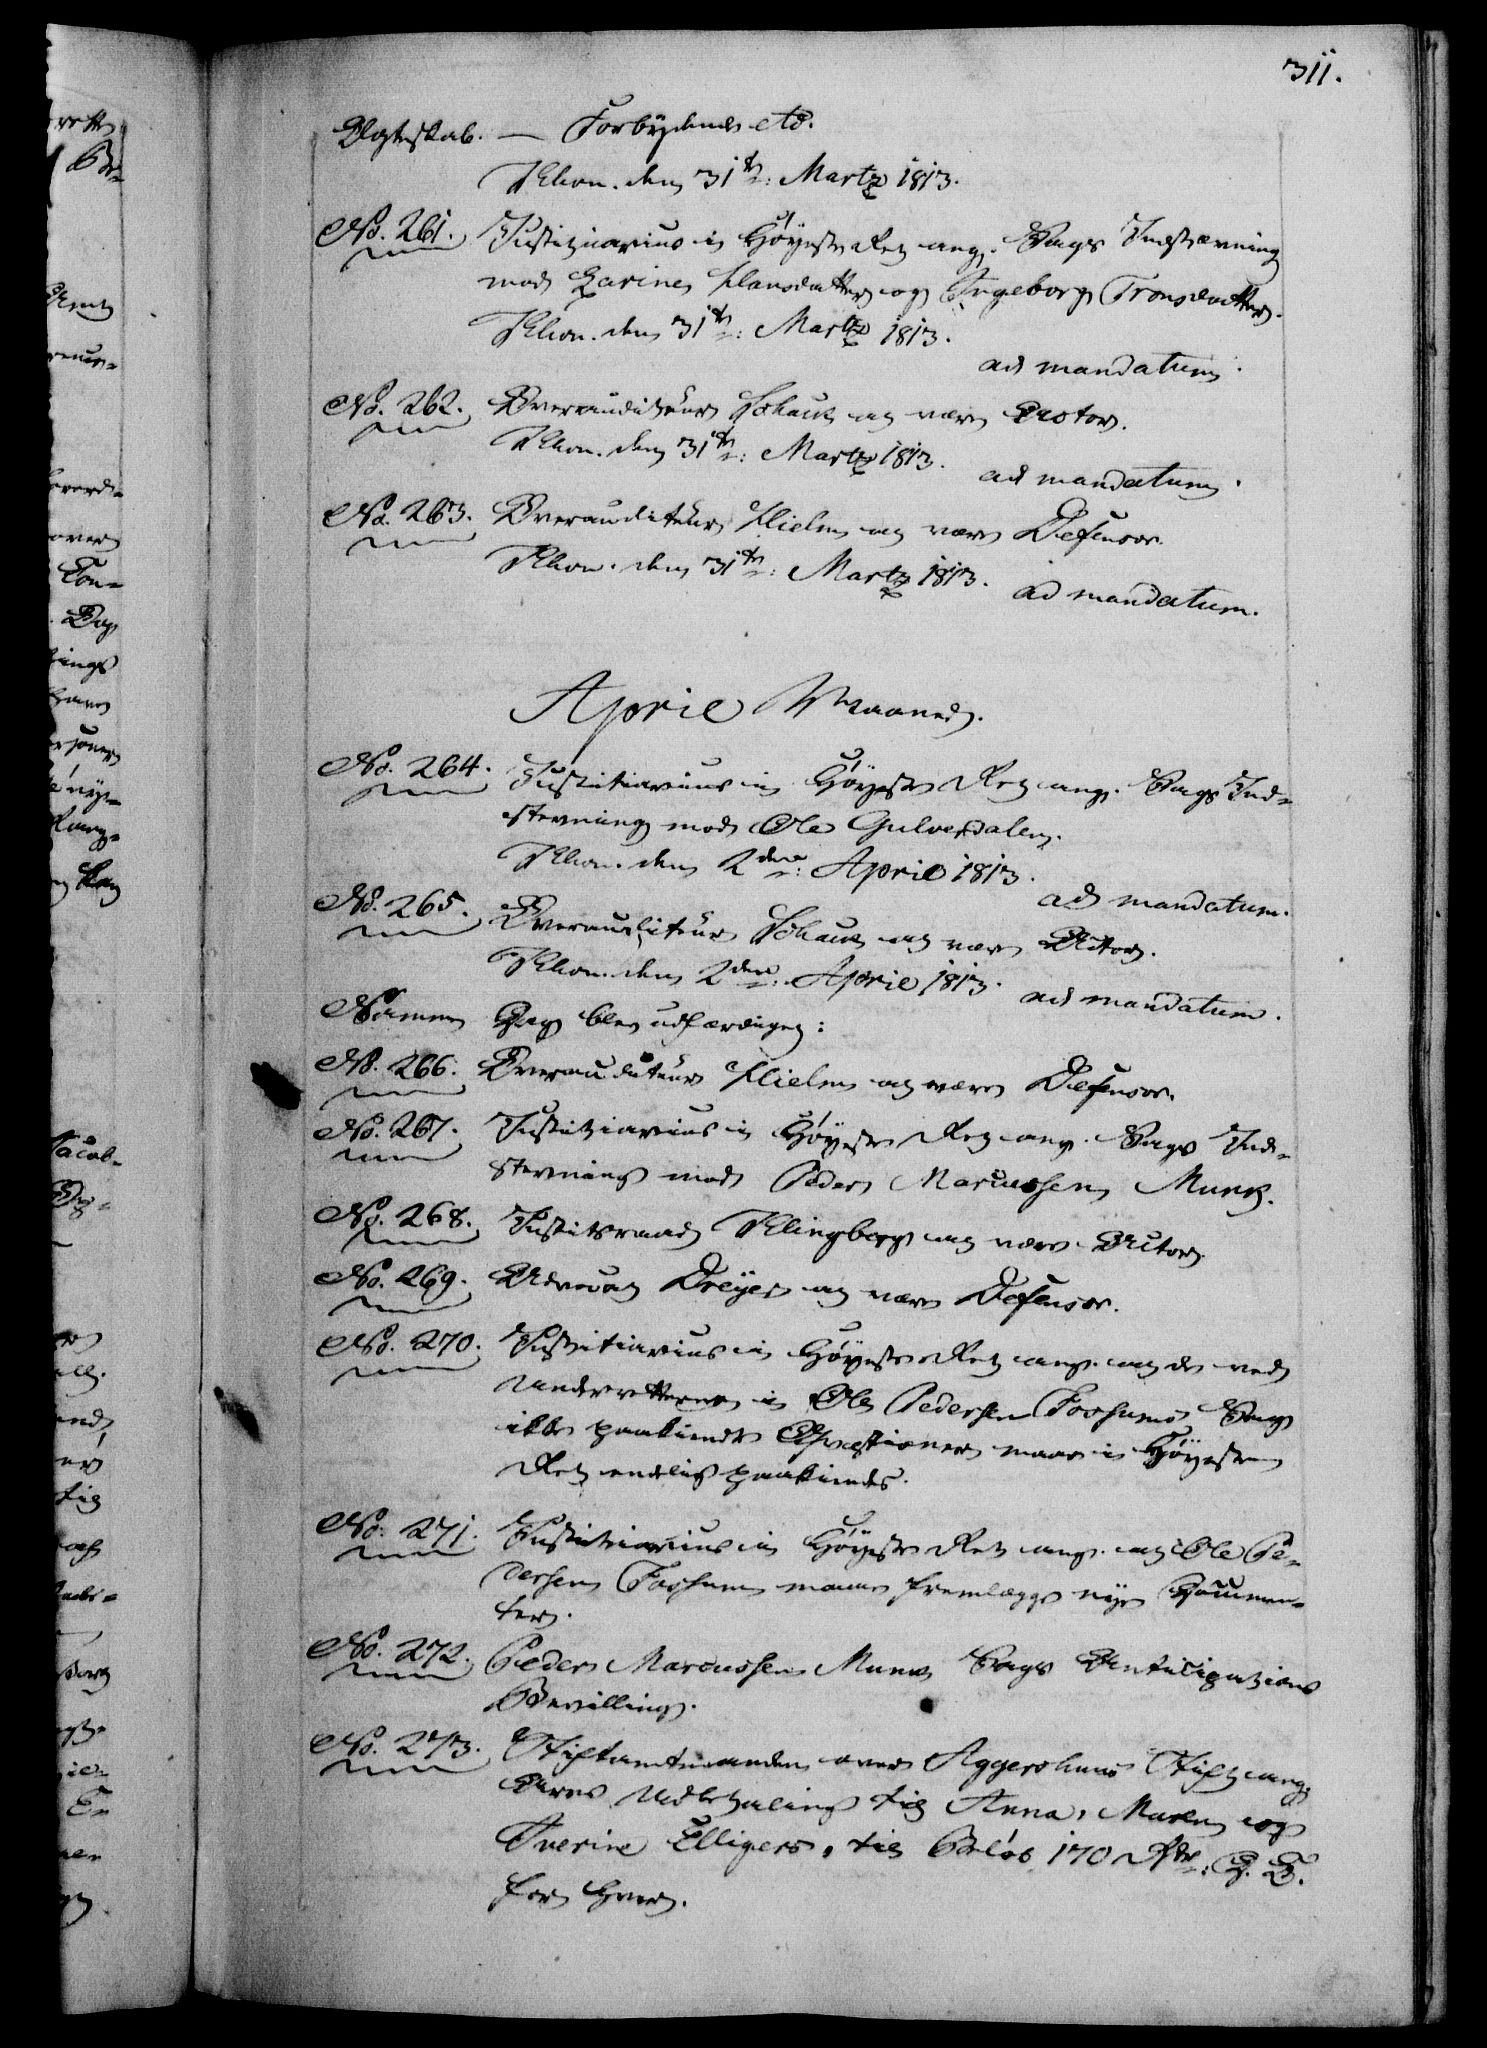 311.
Ægteskab. — Forbydende etc.
Khvn. den 31te: Martz 1813.
No. 261. Justitiarius i Høyeste Ret ang. Sags Indstævning
mod Karine Hansdatter og Ingeborg Tronsdatter.
Khvn. den 31te: Martz 1813.
ad mandatum.
No. 262. Overauditeur Schack at være Actor.
Khvn. den 31te: Martz 1813.
ad mandatum.
No. 263. Overauditeur Hielm at være Defensor.
Khvn. den 31te: Martz 1813.
ad mandatum.
April Maaned.
No. 264. Justitiarius i Høyeste Ret ang. Sags Ind-
stevning mod Ole Gulverdalen.
Khvn. den 2den: April 1813.
ad mandatum.
No. 265. Overauditeur Schack at være Actor.
Khvn. den 2den: April 1813.
ad mandatum.
Samme Dag blev udfærdiget:
No. 266. Overauditeur Hielm at være Defensor.
No. 267. Justitiarius i Høyeste Ret ang. Sags Ind-
stevning mod Peder Marcussen Munk.
No. 268. Justitsraad Klingberg at være Actor.
No. 269. Advocat Dreyer at være Defensor.
No. 270. Justitiarius i Høyeste Ret ang. at de ved
Underretterne i Ole Pedersen Fossums Sag
ikke paakiendte Qvæstioner maae i Høyeste
Ret endelig paakiendes.
No. 271. Justitiarius i Høyeste Ret ang. at Ole Pe-
dersen Fossum maae fremlægge nye Documen-
ter.
No. 272. Peder Marcussen Munks Sags Anticipations
Bevilling.
No. 273. Stiftamtmanden over Aggershuus Stift ang.
Arvs Udbetaling til Anna, Maren og
Iverine Elligers, til Beløb 170 Rdr: D. C.
for hver.